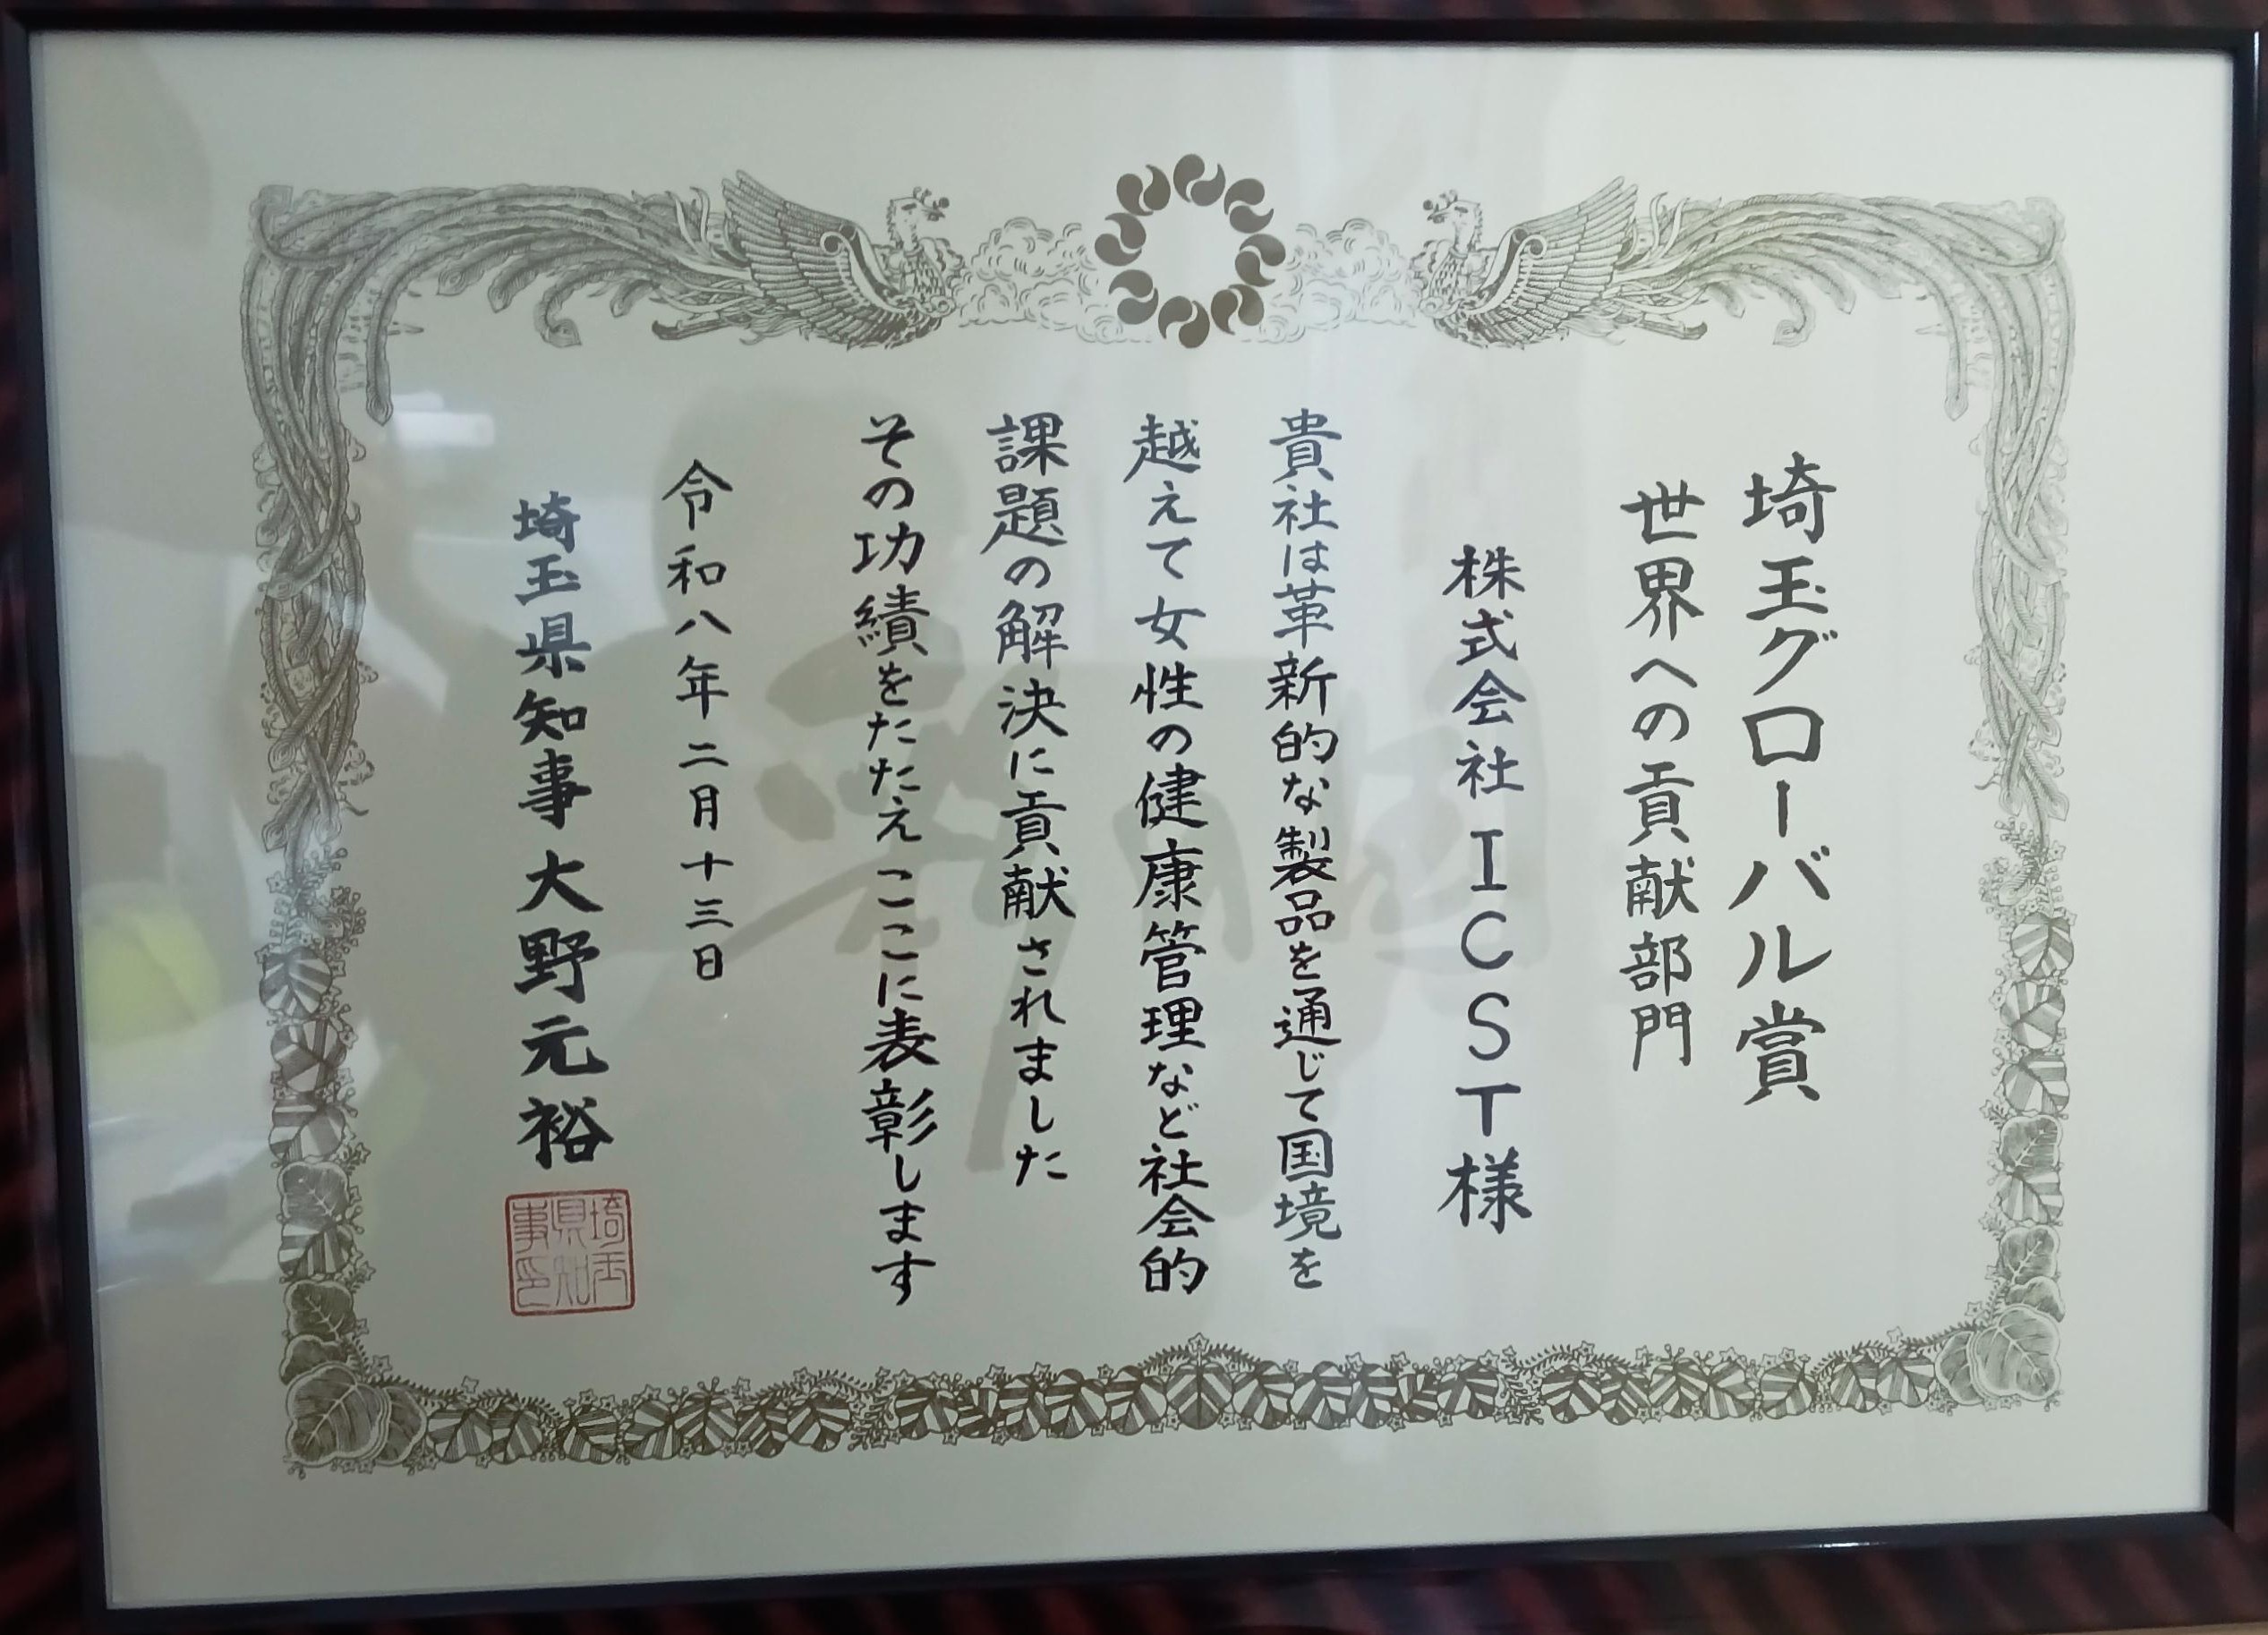 埼玉グローバル賞
世界への貢献部門
株式会社ICST様
貴社は革新的な製品を通じて国境を
越えて女性の健康管理など社会的
課題の解決に貢献されました
その功績をたたえここに表彰します
令和八年二月十三日
埼玉県知事 大野元裕
埼玉県知事印